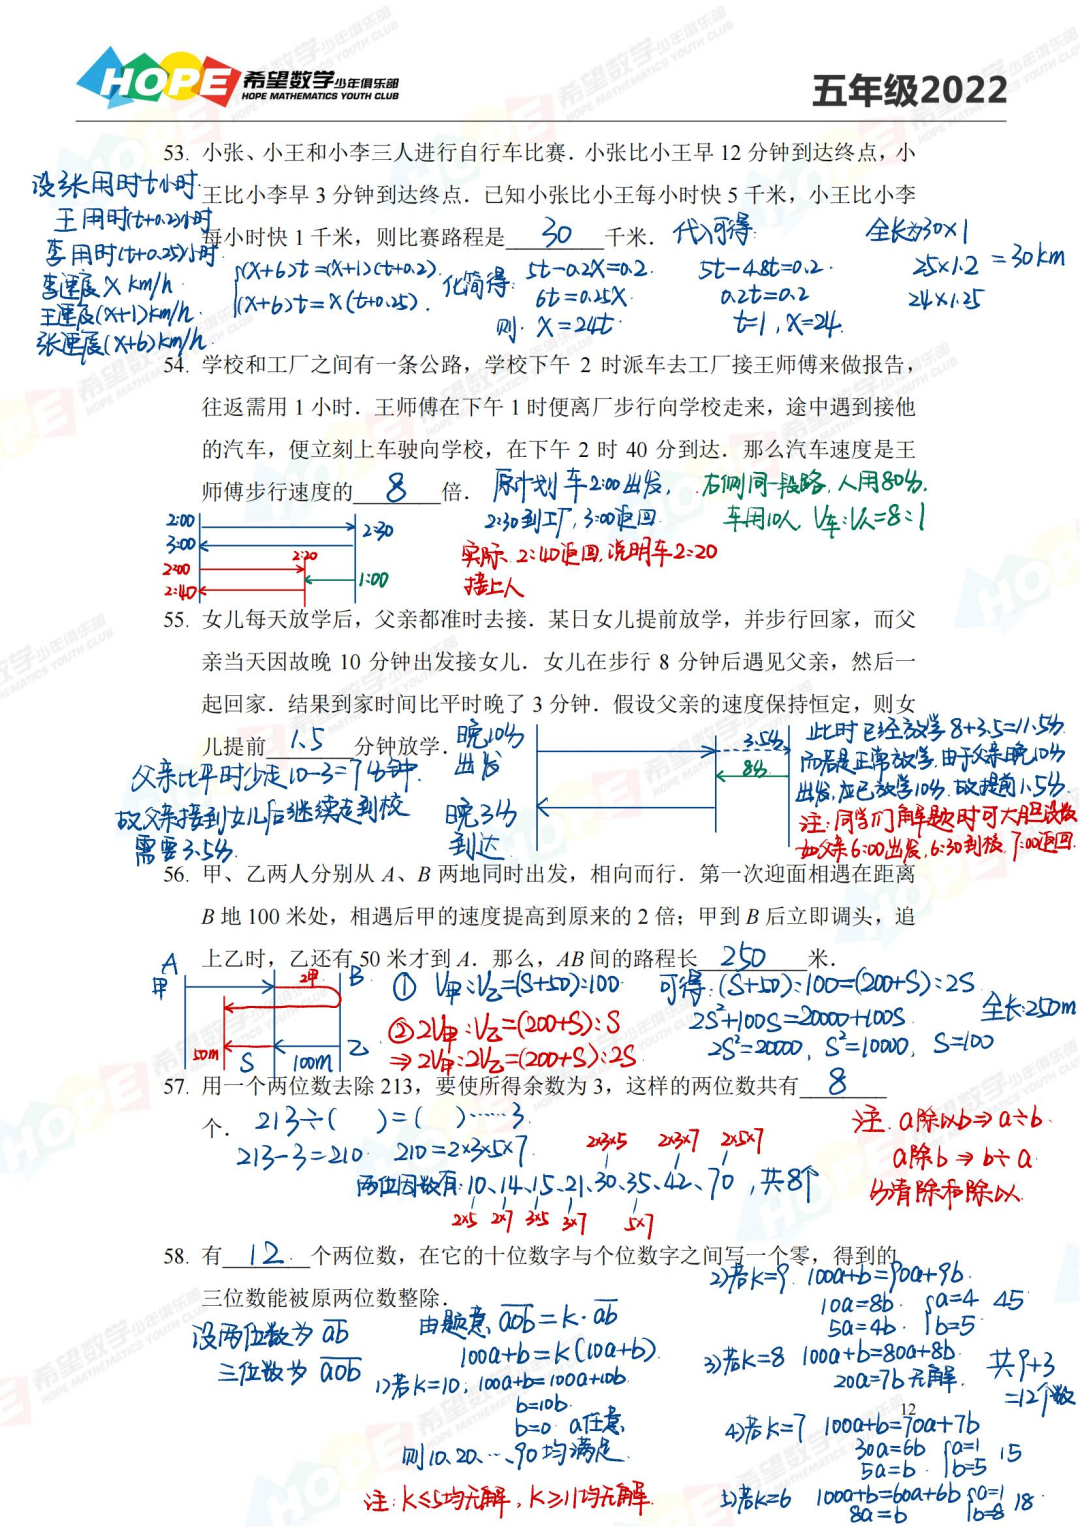 HOPE 希望数学少年俱乐部
HOPE MATHEMATICS YOUTH CLUB
五年级2022
53. 小张、小王和小李三人进行自行车比赛．小张比小王早 12 分钟到达终点，小
王比小李早 3 分钟到达终点．已知小张比小王每小时快 5 千米，小王比小李
每小时快 1 千米，则比赛路程是 30 千米．
设张用时t小时
王用时(t+0.2)小时
李用时(t+0.25)小时
李速度 X km/h
王速度(X+1)km/h
张速度(X+6)km/h
(X+6)t=(X+1)(t+0.2)
(X+6)t=X(t+0.25).
化简得:
5t-0.2X=0.2
6t=0.25X
则. X=24t
代入可得:
5t-4.8t=0.2
0.2t=0.2
t=1, X=24.
全长为30×1
25×1.2 =30km
24×1.25
54. 学校和工厂之间有一条公路，学校下午 2 时派车去工厂接王师傅来做报告，
往返需用 1 小时．王师傅在下午 1 时便离厂步行向学校走来，途中遇到接他
的汽车，便立刻上车驶向学校，在下午 2 时 40 分到达．那么汽车速度是王
师傅步行速度的 8 倍．
原计划车2:00出发，
2:30到工厂, 3:00返回
实际 2:40返回,说明车2:20
接上人
右侧同一段路，人用80分，
车用10人 V车:V人=8:1
2:00
2:30
3:00
2:20
2:00
1:00
2:40
55. 女儿每天放学后，父亲都准时去接．某日女儿提前放学，并步行回家，而父
亲当天因故晚 10 分钟出发接女儿．女儿在步行 8 分钟后遇见父亲，然后一
起回家．结果到家时间比平时晚了 3 分钟．假设父亲的速度保持恒定，则女
儿提前 1.5 分钟放学．
父亲比平时少走10-3=7分钟
故父亲接到女儿后继续走到校
需要3.5分.
晚10分
出发
晚3分
到达
3.5分
8分
此时已经放学8+3.5=11.5分
而若是正常放学,由于父亲晚10分
出发,应已放学10分.故提前1.5分.
注:同学们解题时可大胆设数
如父亲6:00出发,6:30到校,7:00返回.
56. 甲、乙两人分别从 A、B 两地同时出发，相向而行．第一次迎面相遇在距离
B 地 100 米处，相遇后甲的速度提高到原来的 2 倍；甲到 B 后立即调头，追
上乙时，乙还有 50 米才到 A．那么，AB 间的路程长 250 米．
A
甲
2甲
B
乙
50m
S
100m
① V甲:V乙=(S+50):100
②2V甲:V乙=(200+S):S
⇒2V甲:2V乙=(200+S):2S
可得:(S+50):100=(200+S):2S
2S²+100S=20000+100S
2S²=20000, S²=10000, S=100
全长:250m
57. 用一个两位数去除 213，要使所得余数为 3，这样的两位数共有 8
个．
213÷( )=( )……3
213-3=210 210=2×3×5×7
2×3×5 2×3×7 2×5×7
两位因数有:10、14、15、21、30、35、42、70，共8个
2×5 2×7 3×5 3×7 5×7
注. a除以b⇒a÷b.
a除b⇒b÷a.
分清除和除以
58. 有 12 个两位数，在它的十位数字与个位数字之间写一个零，得到的
三位数能被原两位数整除．
设两位数为 ab
三位数为 a0b
由题意, a0b=K·ab
100a+b=K(10a+b)
1)若K=10, 100a+b=100a+10b
b=10b
b=0 a任意,
则10、20、…、90均满足
注:K≤5均无解，K≥11均无解
2)若K=9. 100a+b=90a+9b
10a=8b
5a=4b
a=4
b=5
45
3)若K=8 100a+b=80a+8b
20a=7b 无解.
共9+3
=12个数
4)若K=7 100a+b=70a+7b
30a=6b
5a=b
a=1
b=5
15
5)若K=6 100a+b=60a+6b
8a=b
a=1
b=8
18
12